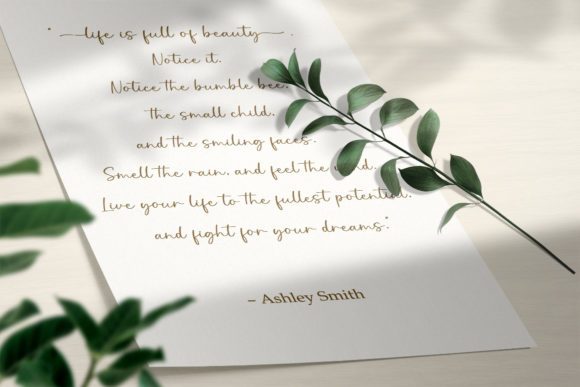 "life is full of beauty.
Notice it.
Notice the bumble bee.
the small child,
and the smiling faces.
Smell the rain, and feel the wind.
Live your life to the fullest potential.
and fight for your dreams."
– Ashley Smith